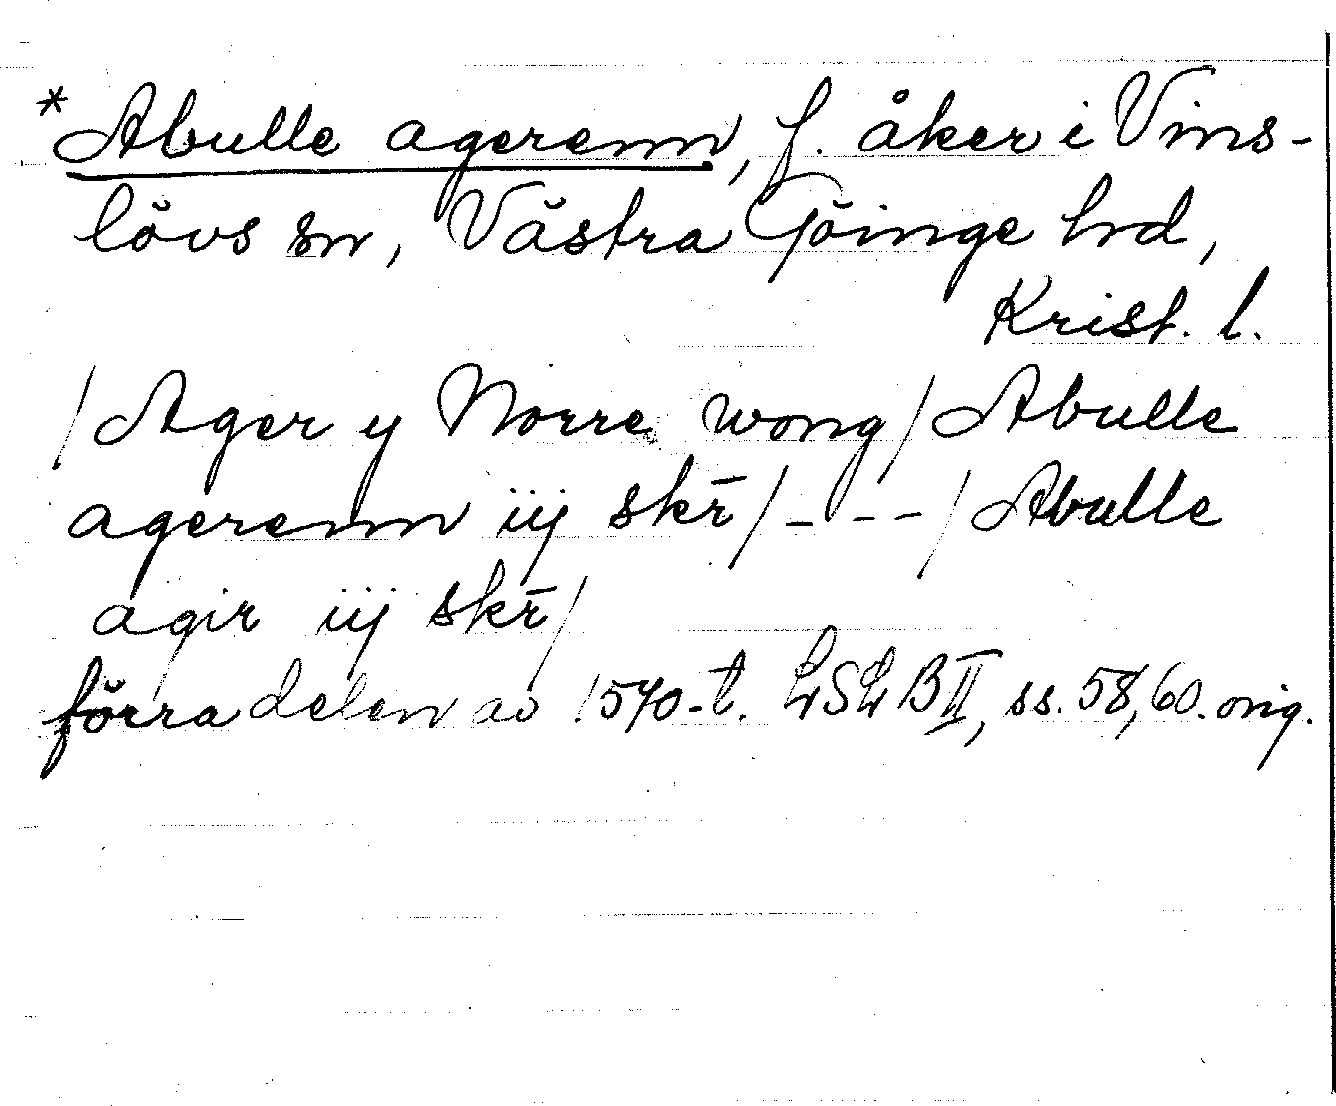 *Abulle agerenn, f. åker i Vins-
lövs sn, Västra Göinge hd,
Krist. l.
/Ager y Norre wong/Abulle
agerenn iij skr̄/---/Abulle
agir iij skr̄/
förra delen av 1570-t. LSLB II, ss. 58, 60. orig.